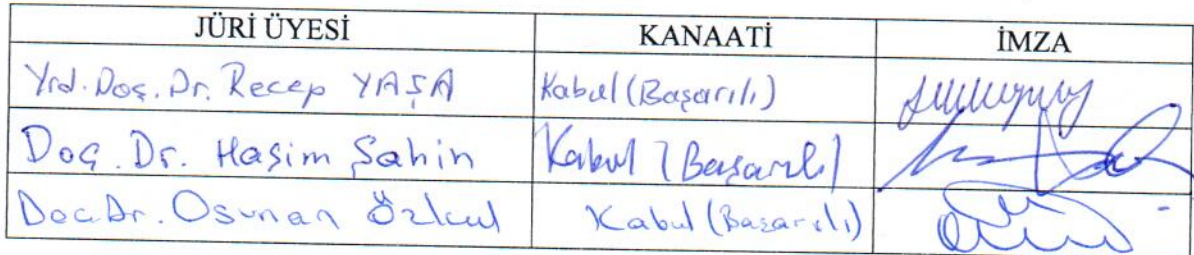 JÜRİ ÜYESİ KANAATİ İMZA
Yrd. Doç. Dr. Recep YAŞA Kabul (Başarılı)
Doç. Dr. Haşim Şahin Kabul (Başarılı)
Doç. Dr. Osman Özkul Kabul (Başarılı)